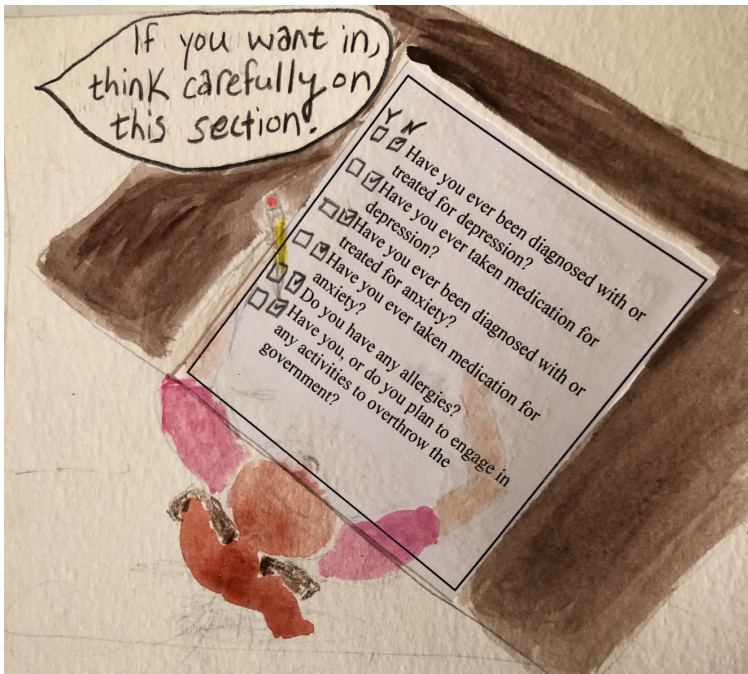 If you want in,
think carefully on
this section.
Y N
Have you ever been diagnosed with or
treated for depression?
Have you ever taken medication for
depression?
Have you ever been diagnosed with or
treated for anxiety?
Have you ever taken medication for
anxiety?
Do you have any allergies?
Have you, or do you plan to engage in
any activities to overthrow the
government?